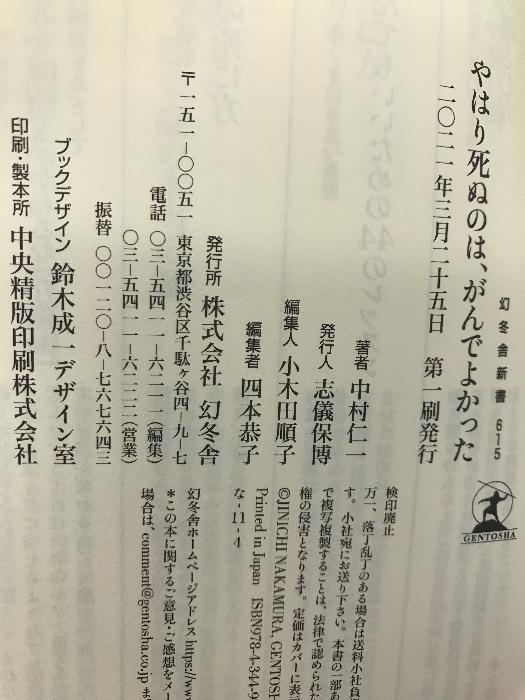 幻冬舎新書 615
やはり死ぬのは、がんでよかった
二〇二一年三月二十五日 第一刷発行
著者 中村仁一
発行人 志儀保博
編集人 小木田順子
編集者 四本恭子
発行所 株式会社 幻冬舎
〒一五一-〇〇五一 東京都渋谷区千駄ヶ谷四-九-七
電話 〇三-五四一一-六二一一(編集)
〇三-五四一一-六二二二(営業)
振替 〇〇一二〇-八-七六七六四三
ブックデザイン 鈴木成一デザイン室
印刷・製本所 中央精版印刷株式会社
GENTOSHA
検印廃止
万一、落丁乱丁のある場合は送料小社負
す。小社宛にお送り下さい。本書の一部あ
で複写複製することは、法律で認められた
権の侵害となります。定価はカバーに表
©JINICHI NAKAMURA, GENTOSH
Printed in Japan ISBN978-4-344-9
な-11-4
幻冬舎ホームページアドレス https://ww
*この本に関するご意見・ご感想をメー
場合は、comment@gentosha.co.jp ま